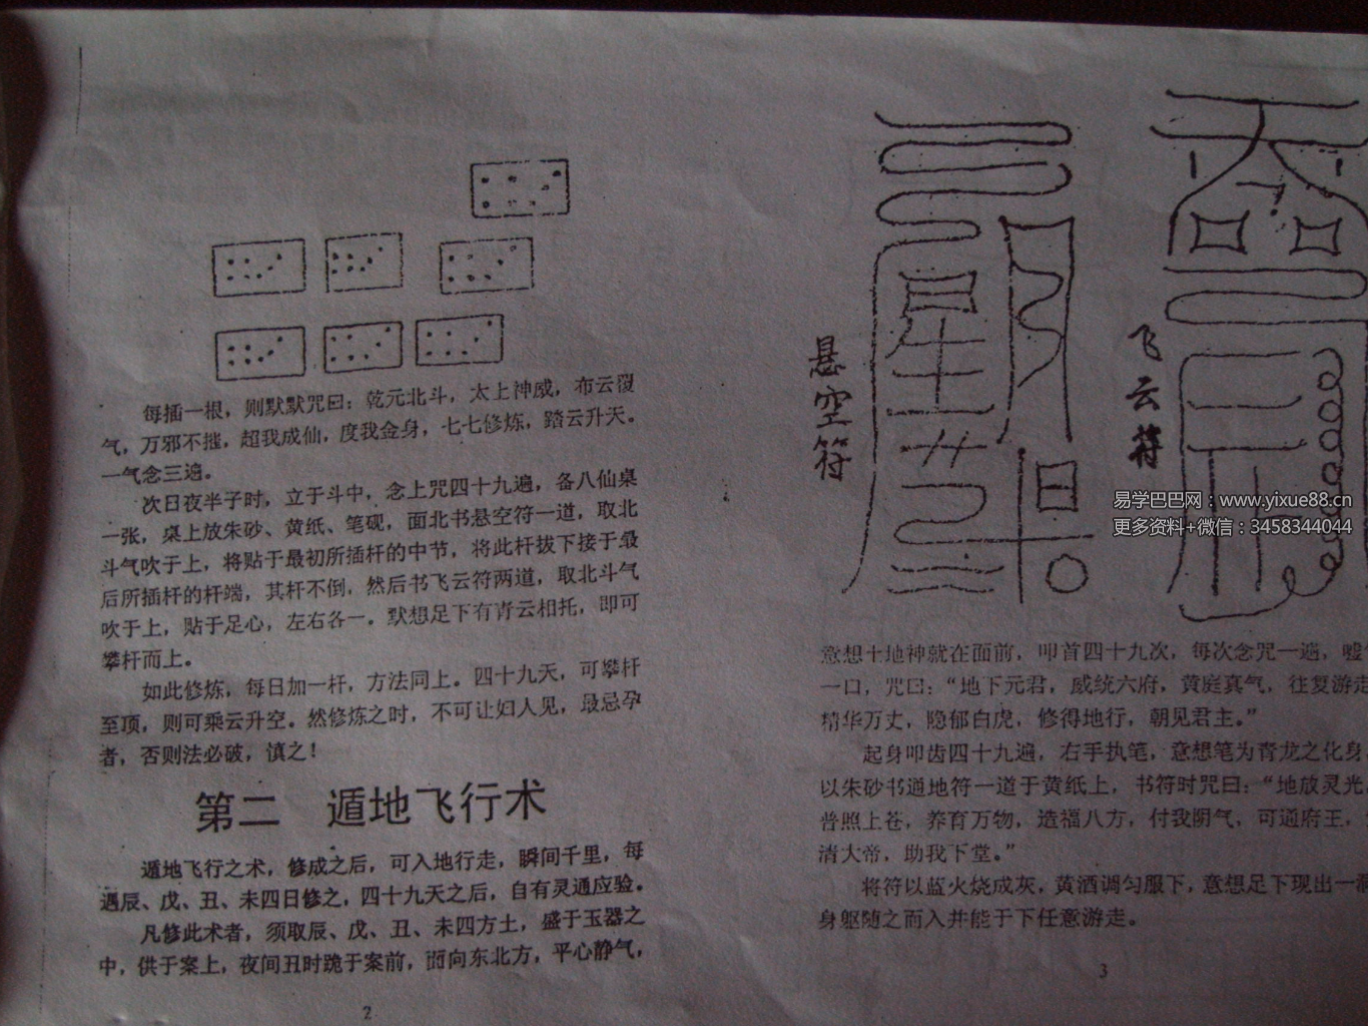 每插一根，则默默咒曰：乾元北斗，太上神威，布云覆
气，万邪不摧，超我成仙，度我金身，七七修炼，踏云升天。
一气念三遍。
次日夜半子时，立于斗中，念上咒四十九遍，备八仙桌
一张，桌上放朱砂、黄纸、笔砚，面北书悬空符一道，取北
斗气吹于上，将贴于最初所插杆的中节，将此杆拔下接于最
后所插杆的杆端，其杆不倒，然后书飞云符两道，取北斗气
吹于上，贴于足心，左右各一。默想足下有青云相托，即可
攀杆而上。
如此修炼，每日加一杆，方法同上。四十九天，可攀杆
至顶，则可乘云升空。然修炼之时，不可让妇人见，最忌孕
者，否则法必破，慎之！
第二 遁地飞行术
遁地飞行之术，修成之后，可入地行走，瞬间千里，每
遇辰、戊、丑、未四日修之，四十九天之后，自有灵通应验。
凡修此术者，须取辰、戊、丑、未四方土，盛于玉器之
中，供于案上，夜间丑时跪于案前，面向东北方，平心静气，
2
悬空符
飞云符
易学巴巴网：www.yixue88.cn
更多资料+微信：3458344044
意想土地神就在面前，叩首四十九次，每次念咒一遍，嘘
一口，咒曰：“地下元君，威统六府，黄庭真气，往复游走
精华万丈，隐郁白虎，修得地行，朝见君主。”
起身叩齿四十九遍，右手执笔，意想笔为青龙之化身
以朱砂书通地符一道于黄纸上，书符时咒曰：“地放灵光
普照上苍，养育万物，造福八方，付我阴气，可通府王，
清大帝，助我下堂。”
将符以蓝火烧成灰，黄酒调匀服下，意想足下现出一
身躯随之而入并能于下任意游走。
3